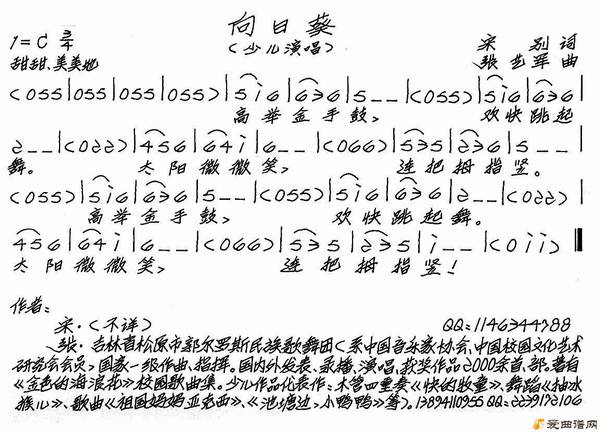 向日葵
(少儿演唱)
1=C 3/4
宋 别 词
甜甜、美美地
张艺军 曲
<055|055|055|055>|5i6|636|5--|<055>|5i6|636|
高举金手鼓, 欢快跳起
2--|<022>|456|64i|6--|<066>|535|235|2--|
舞。 太阳微微笑, 连把拇指竖。
<055>|5i6|636|5--|<055>|5i6|636|2--|<022>|
高举金手鼓, 欢快跳起舞。
456|64i|6--|<066>|535|235|i--|<0ii>
太阳微微笑, 连把拇指竖!
作者:
宋·(不详) QQ:1146344788
张·吉林省松原市郭尔罗斯民族歌舞团(系中国音乐家协会、中国校园文化艺术
研究会会员),国家一级作曲、指挥。国内外发表、录播、演唱、获奖作品2000余首、部。著有
《金色的海浪花》校园歌曲集。少儿作品代表作:木管四重奏《快的牧童》、舞蹈《抽水
猴儿》、歌曲《祖国妈妈亚克西》、《池塘边,小鸭鸭》等。13894110955 QQ:2239172106
爱曲谱网